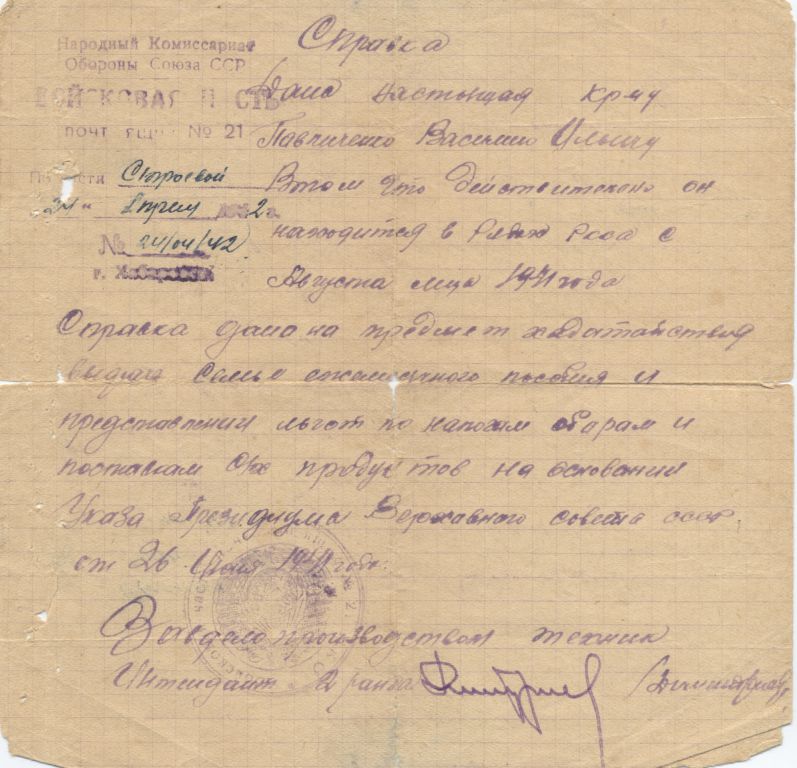 Справка
Народный Комиссариат
Обороны Союза ССР
ВОЙСКОВАЯ Ч СТЬ
почт ящи № 21
По части Строевой
24 " Апреля 1942 г.
№ 24/04/42
г. Хабаровск
Дана настоящая кр-му
Павличенко Василию Ильичу
В том что действительно он
находится в рядах РККА с
Августа м-ца 1941 года
Справка дана на предмет ходатайствия
выдачи семье ежемесячного пособия и
представлении льгот по налогам сборам и
поставкам с/х продуктов на основании
Указа Президиума Верховного совета СССР
от 26 Июня 1941 года.
Зав делопроизводством техник
Интендант 2 ранга